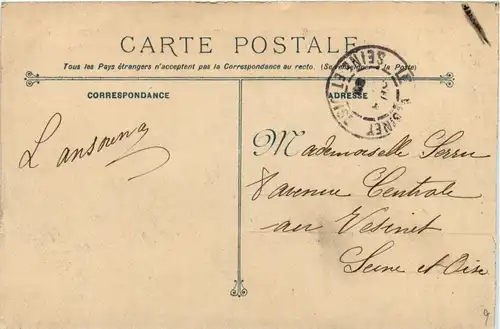 CARTE POSTALE
Tous les Pays étrangers n'acceptent pas la Correspondance au recto. (Se renseigner à la Poste)
CORRESPONDANCE
ADRESSE
LE VESINET
SEINE ET OISE
Mademoiselle Serru
8 avenue Centrale
au Vesinet
Seine et Oise